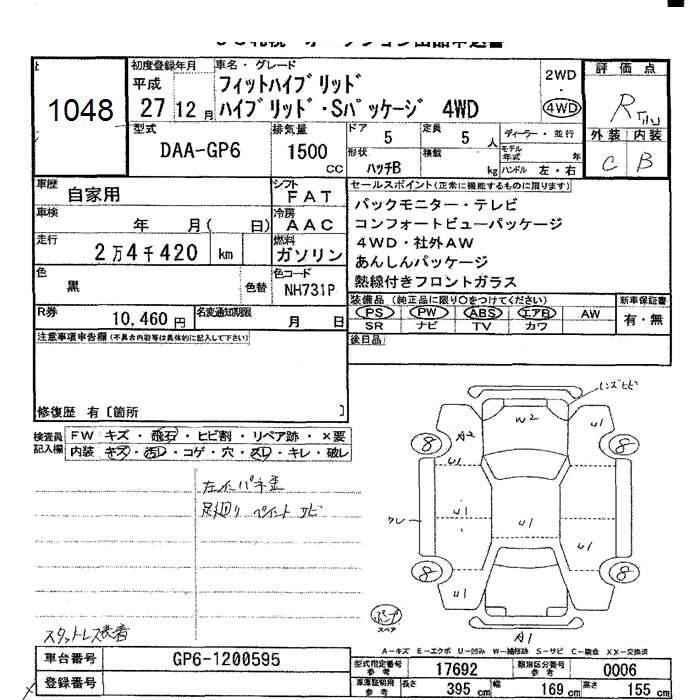 1048
初度登録年月
平成
27 12 月
車名・グレード
フィットハイブリッド
ハイブリッド・Sパッケージ 4WD
2WD
・
4WD
評価点
R
外装 内装
C B
型式
DAA-GP6
排気量
1500
cc
ドア 5
定員 5 人
形状
ハッチB
積載
kg
ディーラー・並行
モデル
年式
年
ハンドル 左・右
車歴
自家用
シフト
FAT
車検
年 月( 日)
冷房
AAC
走行
2万4千420 km
燃料
ガソリン
色
黒
色替
色コード
NH731P
R券
10,460 円
名変通知期限
月 日
セールスポイント(正常に機能するものに限ります)
バックモニター・テレビ
コンフォートビューパッケージ
4WD・社外AW
あんしんパッケージ
熱線付きフロントガラス
装備品(純正品に限り○をつけてください)
PS PW ABS エアB AW
SR ナビ TV カワ
新車保証書
有・無
後日品
注意事項申告欄(不具合内容等は具体的に記入して下さい)
修復歴 有〔箇所 〕
検査員
記入欄
FW キズ・飛石・ヒビ割・リペア跡・×要
内装 キズ・汚レ・コゲ・穴・スレ・キレ・破レ
左インパネ歪
足廻り ペイント サビ
スタットレス装着
レンズヒビ
W2
A2
U1
U1
U1
U1
U1
U1
U1
クレ
8
8
8
8
A1
スペア
A-キズ E-エクボ U-凹み W-補修跡 S-サビ C-腐食 XX-交換済
車台番号
GP6-1200595
登録番号
型式指定番号
参考
17692
類別区分番号
参考
0006
車庫証明用
参考
長さ 395 cm
幅 169 cm
高さ 155 cm